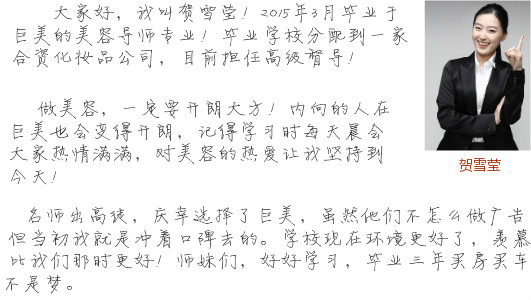 大家好，我叫贺雪莹！2015年3月毕业于
巨美的美容导师专业！毕业学校分配到一家
合资化妆品公司，目前担任高级督导！
做美容，一定要开朗大方！内向的人在
巨美也会变得开朗，记得学习时每天晨会
大家热情满满，对美容的热爱让我坚持到
今天！
贺雪莹
名师出高徒，庆幸选择了巨美，虽然他们不怎么做广告
但当初我就是冲着口碑去的。学校现在环境更好了，羡慕
比我们那时更好！师妹们，好好学习，毕业三年买房买车
不是梦。